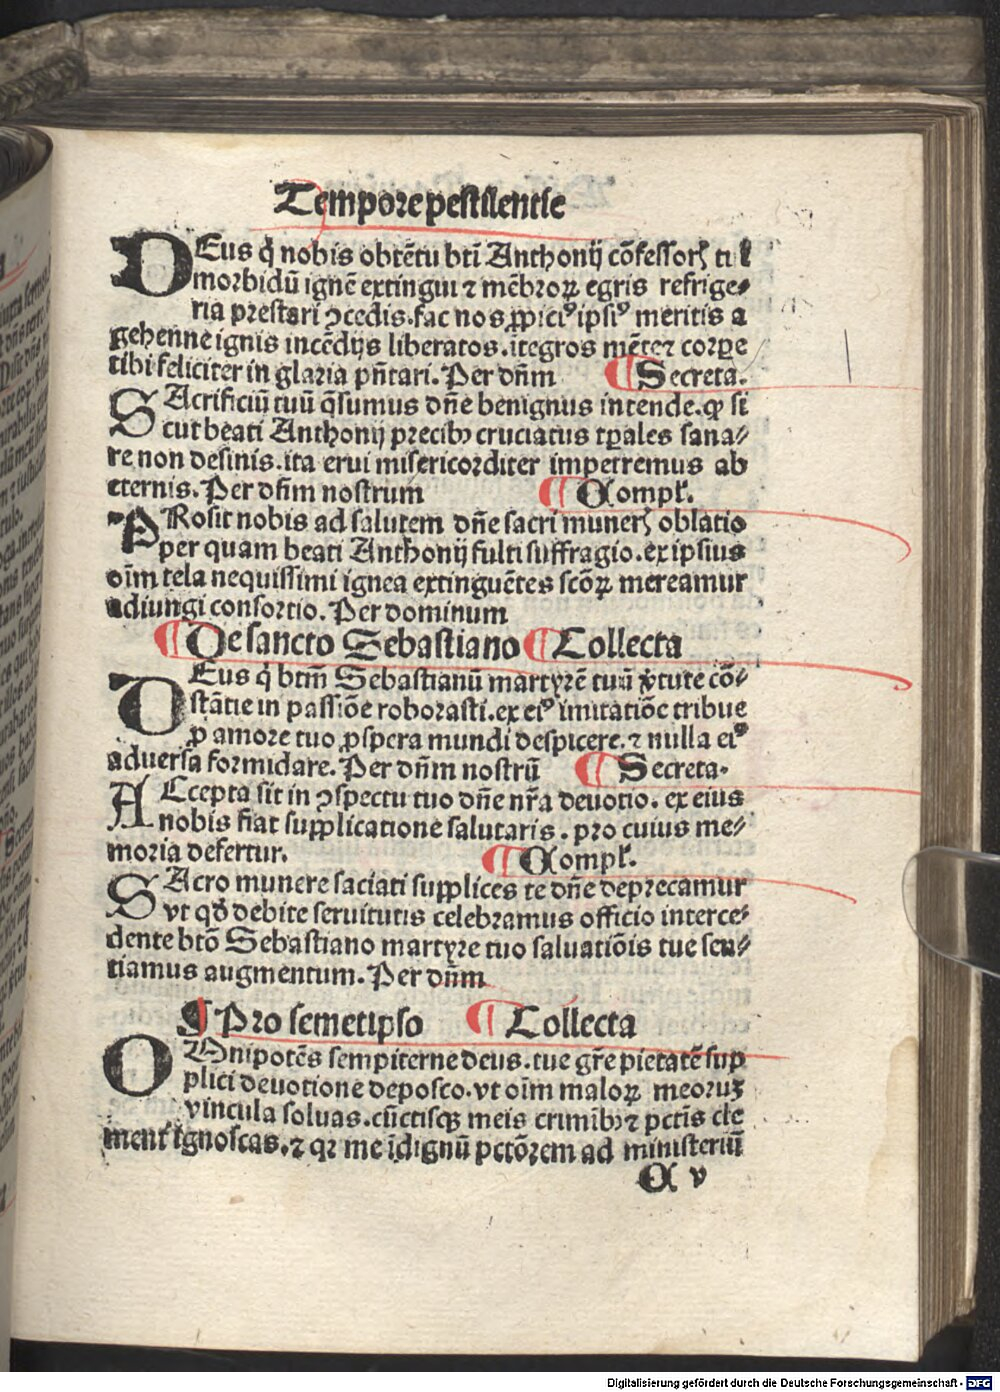 Tempore pestilentie
DEus q̇ nobis obtētu bti̅ Anthonij cōfessorꝭ tui
morbidū ignē extingui ⁊ mēbroꝝ egris refrige⸗
ria prestari ꝯcedis. fac nos ꝓpiciꝰ ipsiꝰ meritis a
gehenne ignis incēdijs liberatos. ītegros mēte ⁊ corꝑe
tibi feliciter in glaria pn̄tari. Per dn̄m ¶ Secreta.
SAcrificiū tuū q̄sumus dn̄e benignus intende. ꝙ si
cut beati Anthonij precibꝰ cruciatus tp̄ales sana⸗
re non desinis. ita erui misericorditer impetremus ab
eternis. Per dn̄m nostrum ¶ Compł.
PRosit nobis ad salutem dn̄e sacri munerꝭ oblatio
per quam beati Anthonij fulti suffragio. ex ipsius
oīm tela nequissimi ignea extinguētes scōꝝ mereamur
adiungi consortio. Per dominum
¶ De sancto Sebastiano ¶ Collecta
DEus q̇ btm̄ Sebastianū martyrē tuū v̇tute cō⸗
stātie in passiōe roborasti. ex eiꝰ imitatiōe tribue
ꝓ amore tuo ꝓspera mundi despicere. ⁊ nulla eiꝰ
aduersa formidare. Per dn̄m nostrū ¶ Secreta.
ACcepta sit in ꝯspectu tuo dn̄e nr̄a deuotio. ex eius
nobis fiat supplicatione salutaris. pro cuius me⸗
moria defertur. ¶ Compł.
SAcro munere saciati supplices te dn̄e deprecamur
vt qd̄ debite seruitutis celebramus officio interce⸗
dente btō Sebastiano martyre tuo saluatiōis tue sen⸗
tiamus augmentum. Per dn̄m
¶ Pro semetipso ¶ Collecta
OMnipotēs sempiterne deus. tue gr̄e pietatē sup
plici deuotione deposco. vt oīm maloꝝ meoruꝫ
vincula soluas. cūctisqꝫ meis crimībꝰ ⁊ pctīs cle
ment̓ ignoscas. ⁊ qꝛ me īdignū pctōrem ad ministeriū
C v
Digitalisierung gefördert durch die Deutsche Forschungsgemeinschaft - DFG